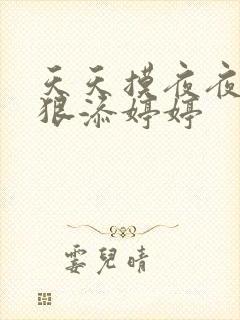 天天摸夜夜
狠添婷婷
霎兒晴